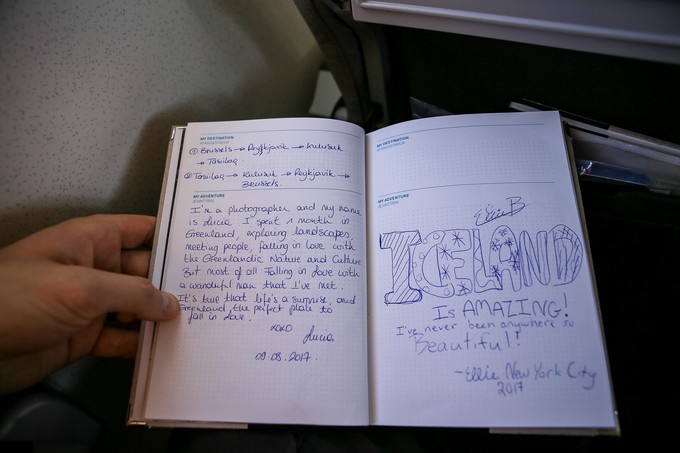 MY DESTINATION
① Brussels → Reykjavik → Kulusuk
→ Tasiilaq
② Tasiilaq → Kulusuk → Reykjavik →
Brussels.
MY ADVENTURE
I'm a photographer and my name
is Lucia. I spent 1 month in
Greenland, exploring landscapes,
meeting people, falling in love with
the Greenlandic Nature and Culture
But most of all falling in love with
a wonderful man that I've met.
It's true that life's a surprise, and
Greenland the perfect place to
fall in love.
xoxo
Lucia
09.08.2017.
MY DESTINATION
MY ADVENTURE
Ellie B
ICELAND
Is AMAZING!
I've never been anywhere so
Beautiful!
-Ellie New York City
2017